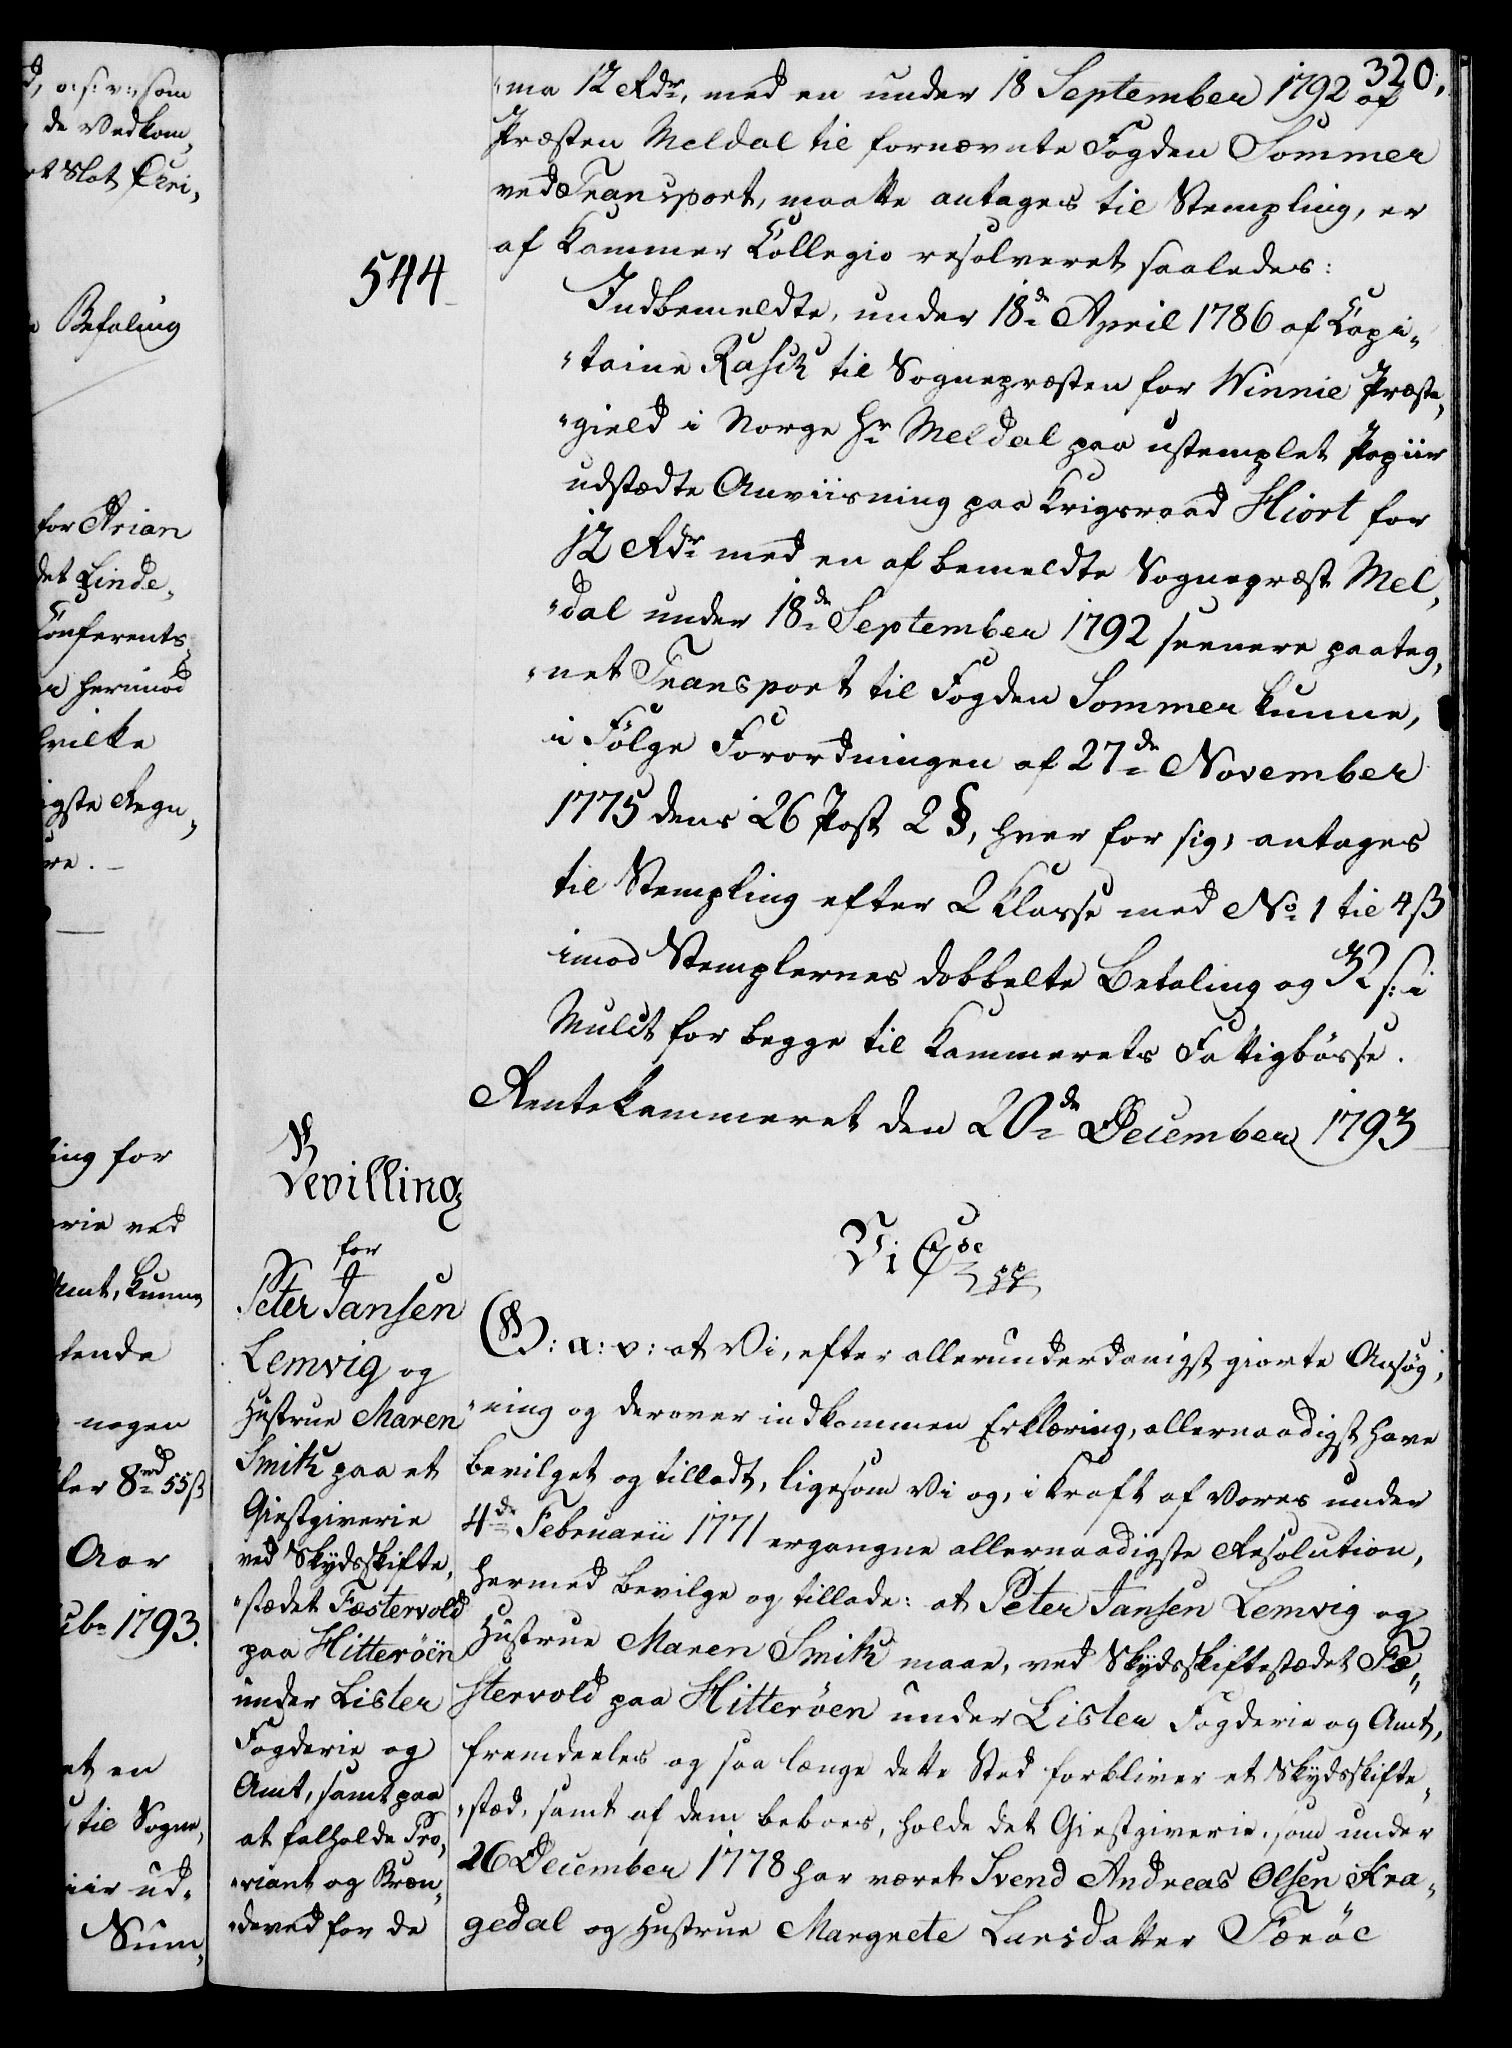 320,
"ma 12 Rdr, med en under 18 September 1792 af
Præsten Meldal til fornævnte Fogden Sommer
ved Transport, maatte antages til Stempling, er
af Kammer Kollegio resolveret saaledes:
544
Indbemeldte, under 18de April 1786 af Capi„
"taine Rasch til Sognepræsten for Winnie Præste„
"gield i Norge Hr Meldal paa ustemplet Papiir
udstædte Anviisning paa Krigsraad Hiort for
12 Rdr med en af bemeldte Sognepræst Mel„
"dal under 18de September 1792 senere paateg„
"net Transport til Fogden Sommer kunne,
i Følge Forordningen af 27de November
1775 dens 26 Post 2 §, hver for sig, antages
til Stempling efter 2 Klasse med No 1 til 4 ß
imod Stemplernes dobbelte Betaling og 32 s: i
Mulct for begge til Kammerets Fattigbøsse.
Rentekammeret den 20de December 1793
Bevilling
for
Peter Jansen
Lemvig og
Hustrue Maren
Smith paa et
Giestgiverie
ved Skydsskifte„
"stædet Fæstervold
paa Hitterøen
under Lister
Fogderie og
Amt, samt paa
at falholde Pro„
"viant og Bræn„
"deved for de
Vi C 7de
G: a: v: at Vi, efter allerunderdanigst giorte Ansøg„
"ning og derover indkommen Erklæring, allernaadigst have
bevilget og tilladt, ligesom Vi og, i Kraft af Vores under
4de Februarii 1771 ergangne allernaadigste Resolution,
hermed bevilge og tillade: at Peter Jansen Lemvig og
Hustrue Maren Smith maae, ved Skydsskiftestædet Fæ„
stervold paa Hitterøen under Lister Fogderie og Amt,
fremdeeles og saa længe dette Sted forbliver et Skydsskifte„
"stæd, samt af dem beboes, holde det Giestgiverie, som under
26 December 1778 har været Svend Andreas Olsen Kra„
gedal og Hustrue Margrete Larsdatter Færøe